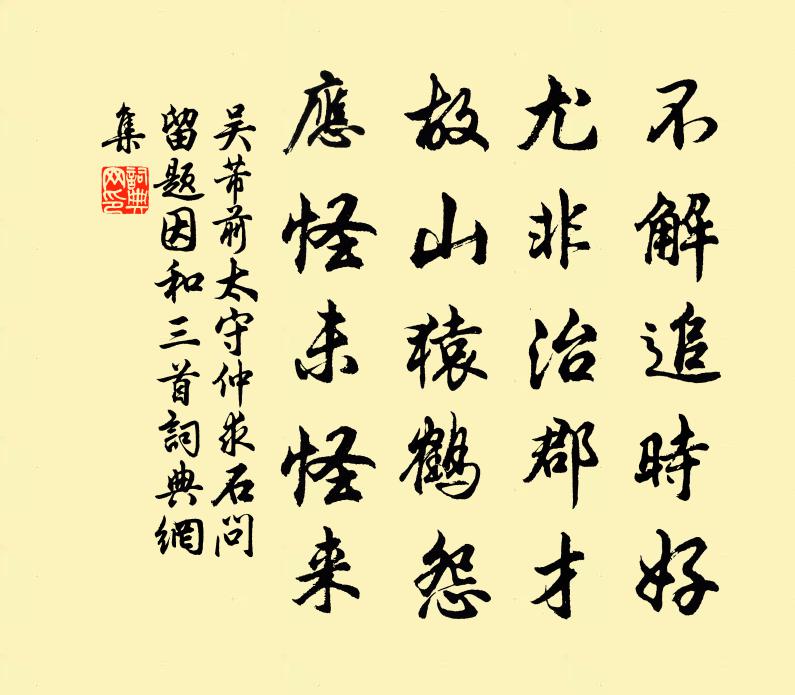 不解追時好
尤非治郡才
故山猿鶴怨
應怪未怪来
吴芾前太守仲求石問
留题因和三首詞典網
集
詞典网印